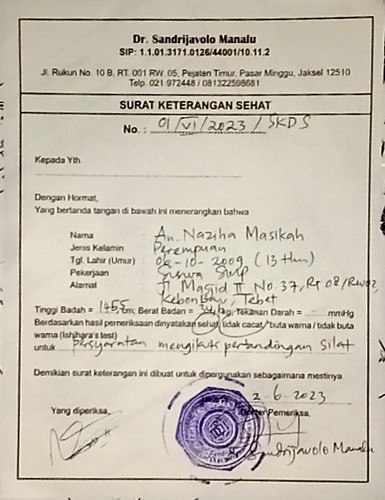 Dr. Sandrijavolo Manalu
SIP: 1.1.01.3171.0126/44001/10.11.2
Jl. Rukun No. 10 B, RT. 001 RW. 05, Pejaten Timur, Pasar Minggu, Jaksel 12510
Telp. 021 972448 / 081322598681
SURAT KETERANGAN SEHAT
No. : 01/VI/2023/SKDS
Kepada Yth.
Dengan Hormat,
Yang bertanda tangan di bawah ini menerangkan bahwa
Nama : An. Naziha Masikah
Jenis Kelamin : Perempuan
Tgl. Lahir (Umur) : 06-10-2009 (13 thn)
Pekerjaan : Siswa SMP
Alamat : Jl Masjid II No. 37, Rt 08/Rw02,
Kebon Baru, Tebet
Tinggi Badah = 145 cm; Berat Badan = 34 kg, Tekanan Darah = - mmHg
Berdasarkan hasil pemeriksaan dinyatakan sehat, tidak cacat / buta warna / tidak buta
warna (Ishihara's test)
untuk persyaratan mengikuti pertandingan silat
Demikian surat keterangan ini dibuat untuk dipergunakan sebagaimana mestinya.
2-6-2023
Yang diperiksa, Dokter Pemeriksa,
Sandrijavolo Manalu